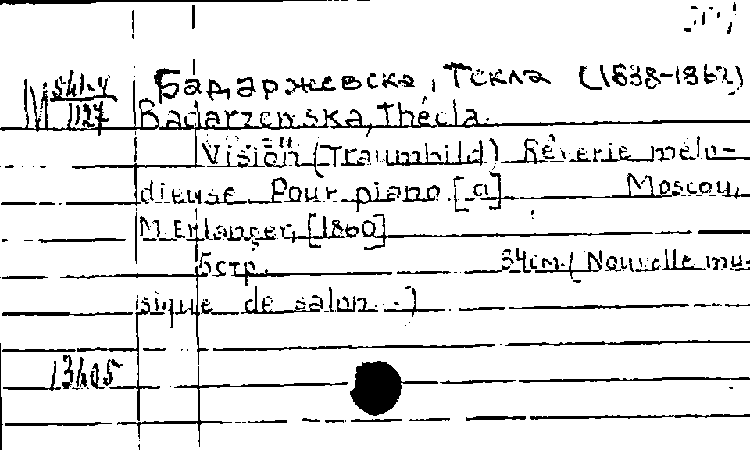 Бадаржевска, Текла (1838-1862)
M 541-4/1127
Badarzewska, Thécla.
Vision (Traumbild) Rêverie mélo-
dieuse. Pour piano. [a] Moscou,
M. Erlanger, [1860]
5 стр. 34 см. (Nouvelle mu-
sique de salon..)
13605